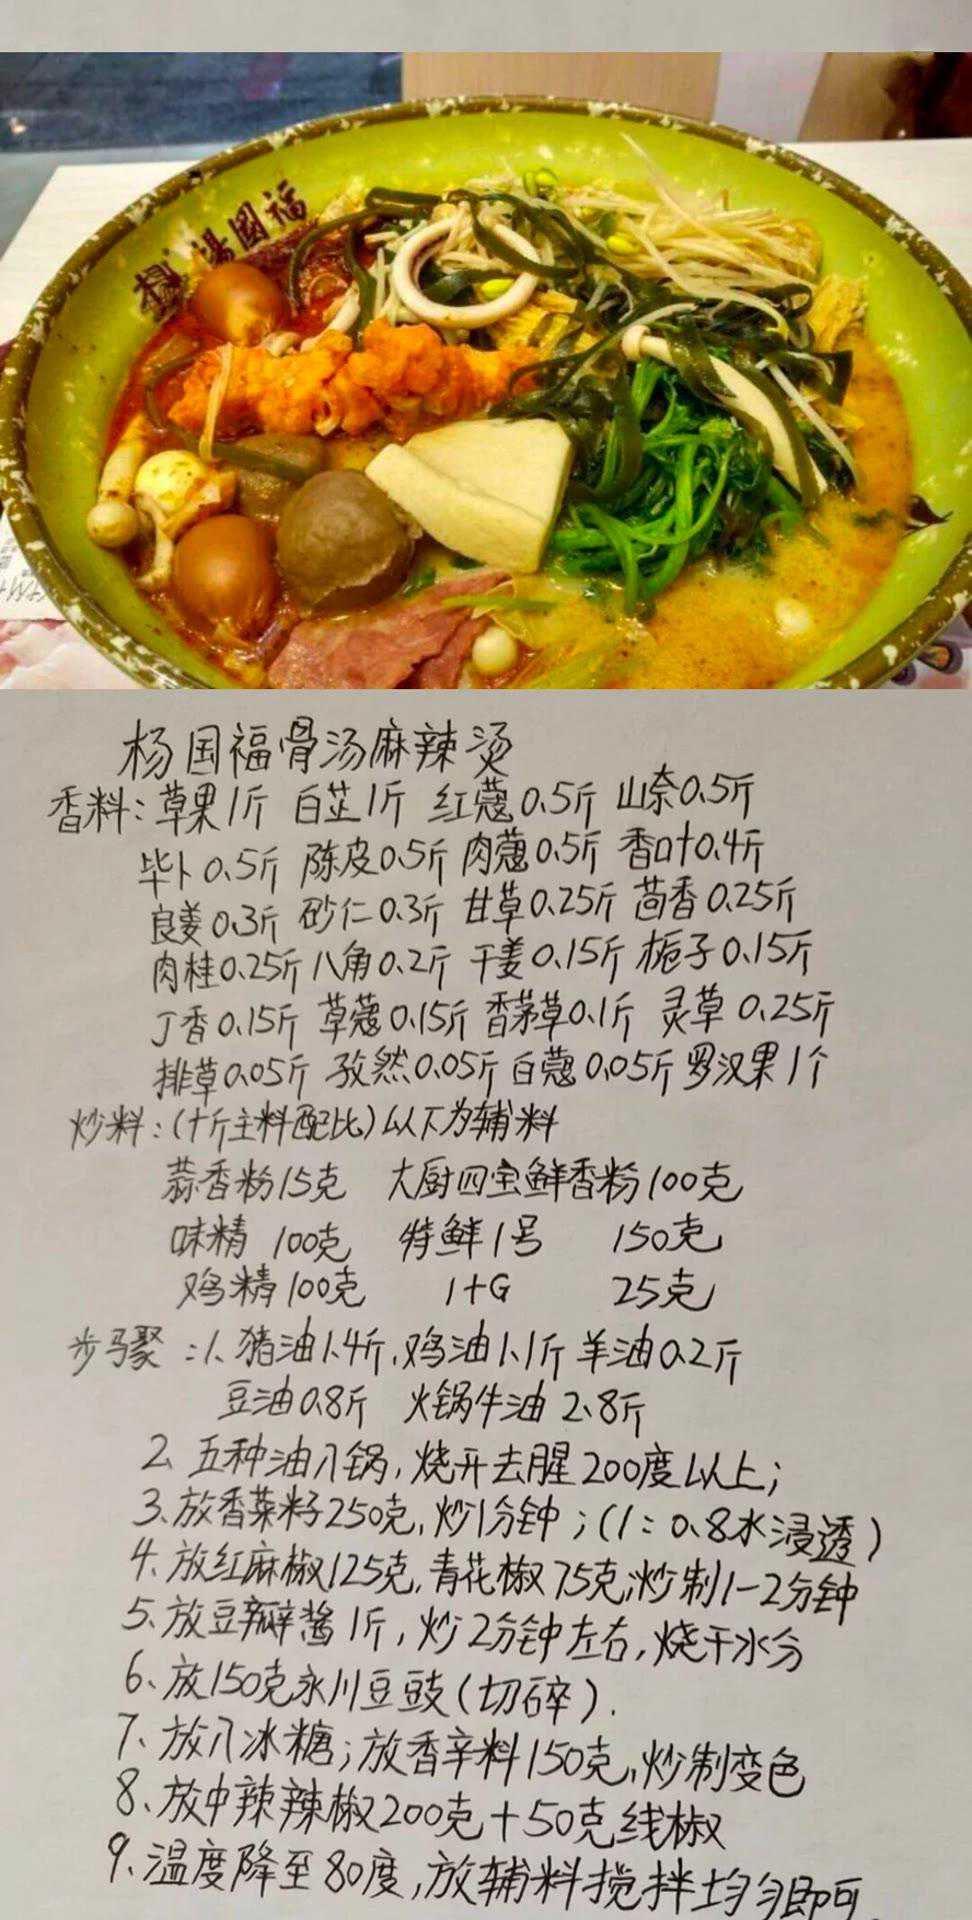 楊國福
杨国福骨汤麻辣烫
香料:草果1斤 白芷1斤 红蔻0.5斤 山奈0.5斤
毕卜0.5斤 陈皮0.5斤 肉蔻0.5斤 香叶0.4斤
良姜0.3斤 砂仁0.3斤 甘草0.25斤 茴香0.25斤
肉桂0.25斤 八角0.2斤 干姜0.15斤 栀子0.15斤
丁香0.15斤 草蔻0.15斤 香茅草0.1斤 灵草0.25斤
排草0.05斤 孜然0.05斤 白蔻0.05斤 罗汉果1个
炒料:(十斤主料配比)以下为辅料
蒜香粉15克 大厨四宝鲜香粉100克
味精 100克 特鲜1号 150克
鸡精100克 1+G 25克
步骤:1、猪油1.4斤,鸡油1.1斤 羊油0.2斤
豆油0.8斤 火锅牛油2.8斤
2、五种油入锅,烧开去腥200度以上;
3、放香菜籽250克,炒1分钟;(1:0.8水浸透)
4、放红麻椒125克,青花椒75克,炒制1-2分钟
5、放豆瓣酱1斤,炒2分钟左右,烧干水分
6、放150克永川豆豉(切碎).
7、放入冰糖;放香辛料150克,炒制变色
8、放中辣辣椒200克+50克线椒
9、温度降至80度,放辅料搅拌均匀即可